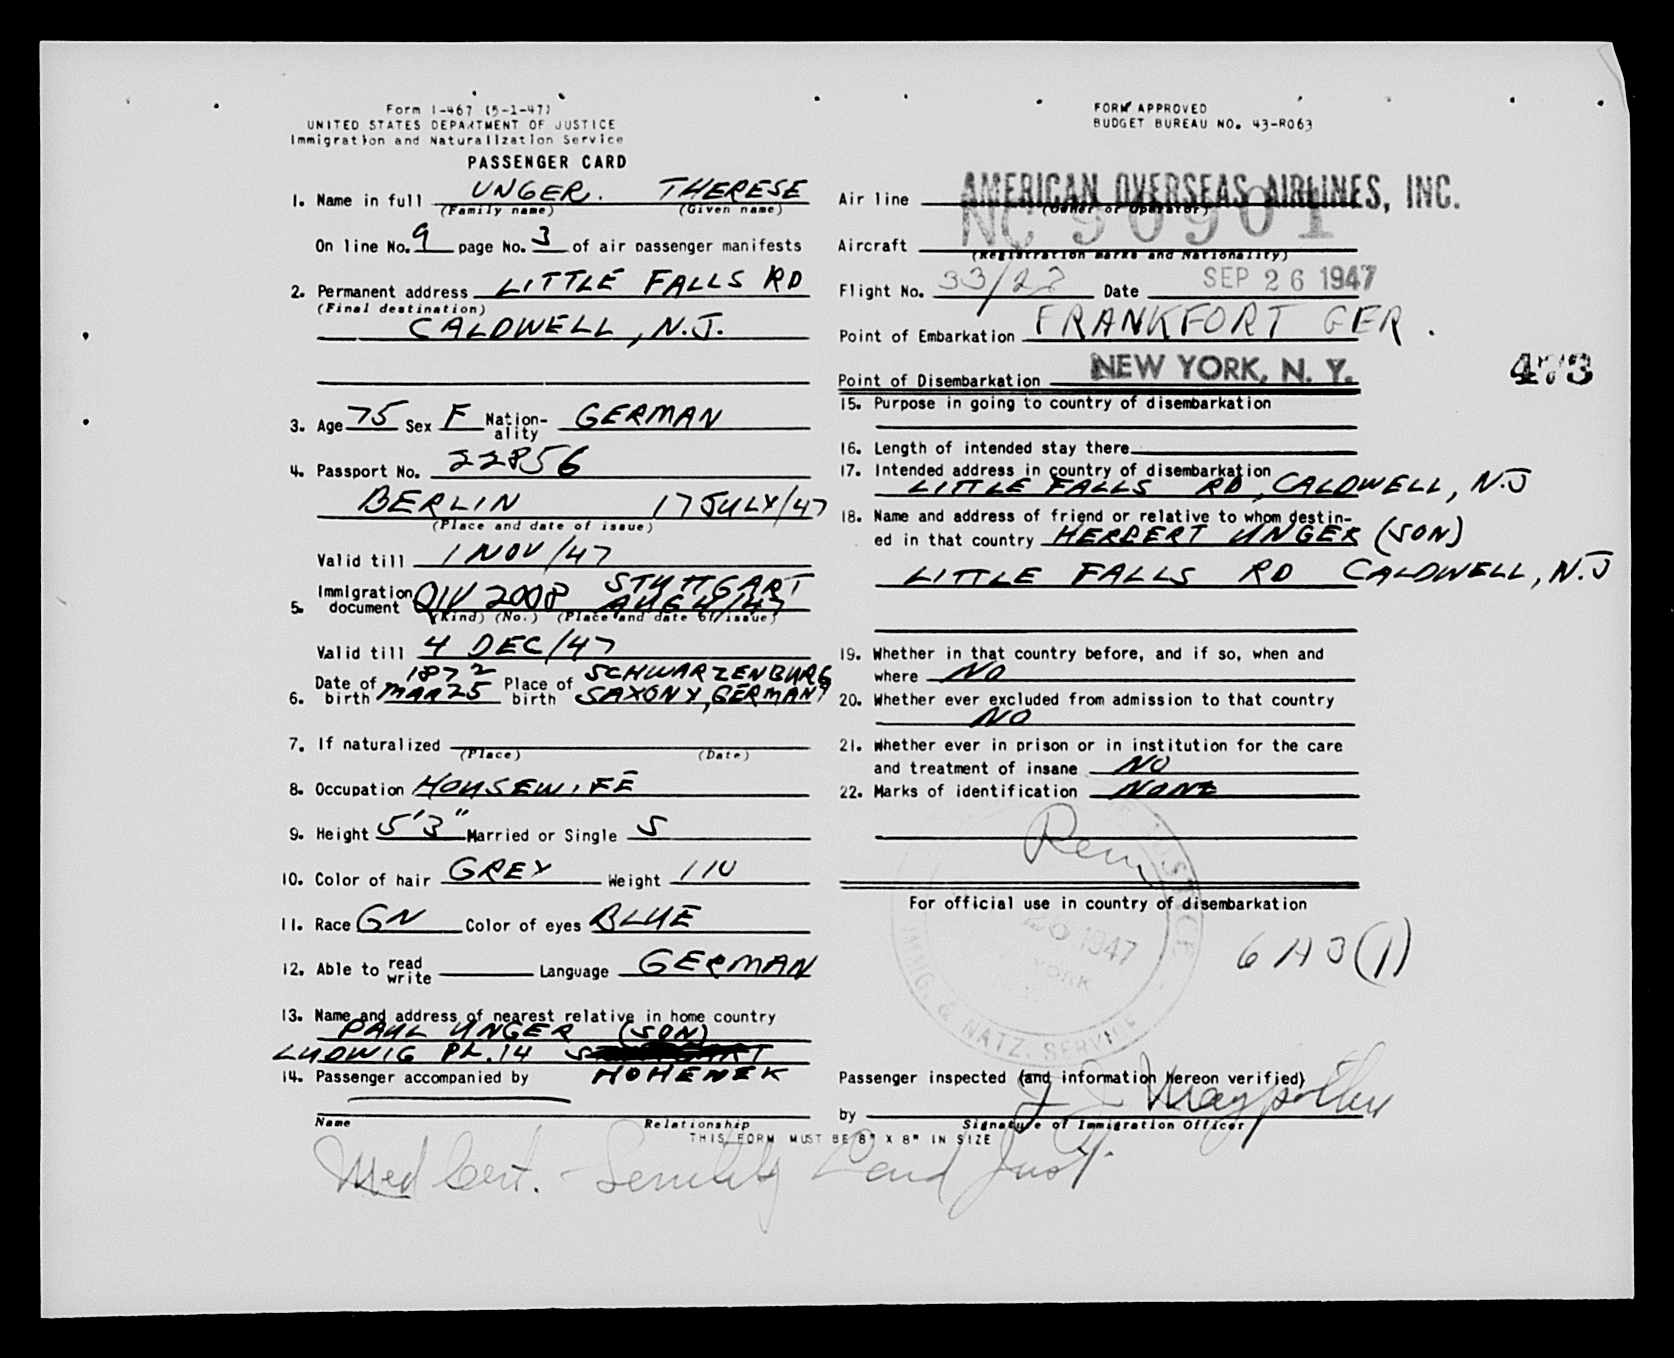 Form I-467 (5-1-47)
UNITED STATES DEPARTMENT OF JUSTICE
Immigration and Naturalization Service
PASSENGER CARD
1. Name in full UNGER. THERESE
(Family name) (Given name)
On line No. 9 page No. 3 of air passenger manifests
2. Permanent address LITTLE FALLS RD
(Final destination)
CALDWELL, N.J.
3. Age 75 Sex F Nation-ality GERMAN
4. Passport No. 22856
BERLIN 17 JULY/47
(Place and date of issue)
Valid till 1 NOV/47
5. Immigration document QIV 2008 STUTTGART AUG 4/47
(Kind) (No.) (Place and date of issue)
Valid till 4 DEC/47
6. Date of birth 1872 MAR 25 Place of birth SCHWARZENBURG SAXONY, GERMANY
7. If naturalized
(Place) (Date)
8. Occupation HOUSEWIFE
9. Height 5'3" Married or Single S
10. Color of hair GREY Weight 110
11. Race GN Color of eyes BLUE
12. Able to read write Language GERMAN
13. Name and address of nearest relative in home country
PAUL UNGER (SON)
LUDWIG PL. 14
HOHENEK
14. Passenger accompanied by
Name Relationship
THIS FORM MUST BE 8" X 8" IN SIZE
Med Cert. - Senility
FORM APPROVED
BUDGET BUREAU NO. 43-R063
Air line AMERICAN OVERSEAS AIRLINES, INC.
(Owner or Operator)
Aircraft NC 90901
(Registration marks and Nationality)
Flight No. 33/23 Date SEP 26 1947
Point of Embarkation FRANKFORT GER.
Point of Disembarkation NEW YORK, N. Y.
473
15. Purpose in going to country of disembarkation
16. Length of intended stay there
17. Intended address in country of disembarkation
LITTLE FALLS RD, CALDWELL, N.J
18. Name and address of friend or relative to whom destin-
ed in that country HERBERT UNGER (SON)
LITTLE FALLS RD CALDWELL, N.J
19. Whether in that country before, and if so, when and
where NO
20. Whether ever excluded from admission to that country
NO
21. Whether ever in prison or in institution for the care
and treatment of insane NO
22. Marks of identification NONE
For official use in country of disembarkation
1947
YORK
IMMIG. & NATZ. SERVICE
Passenger inspected (and information hereon verified)
by
Signature of Immigration Officer